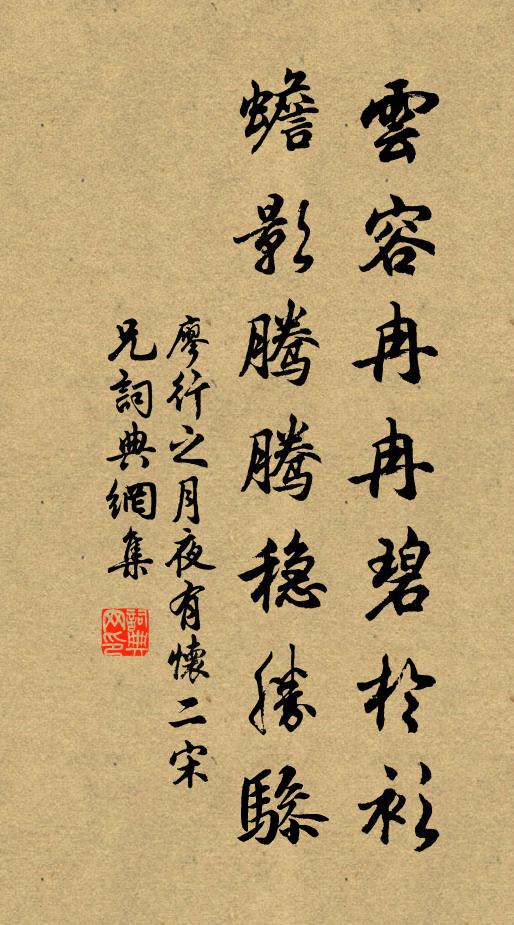 雲容冉冉碧於衫
蟾影騰騰穩勝驂
廖行之月夜有懷二宋
兄詞典網集
詞典网印